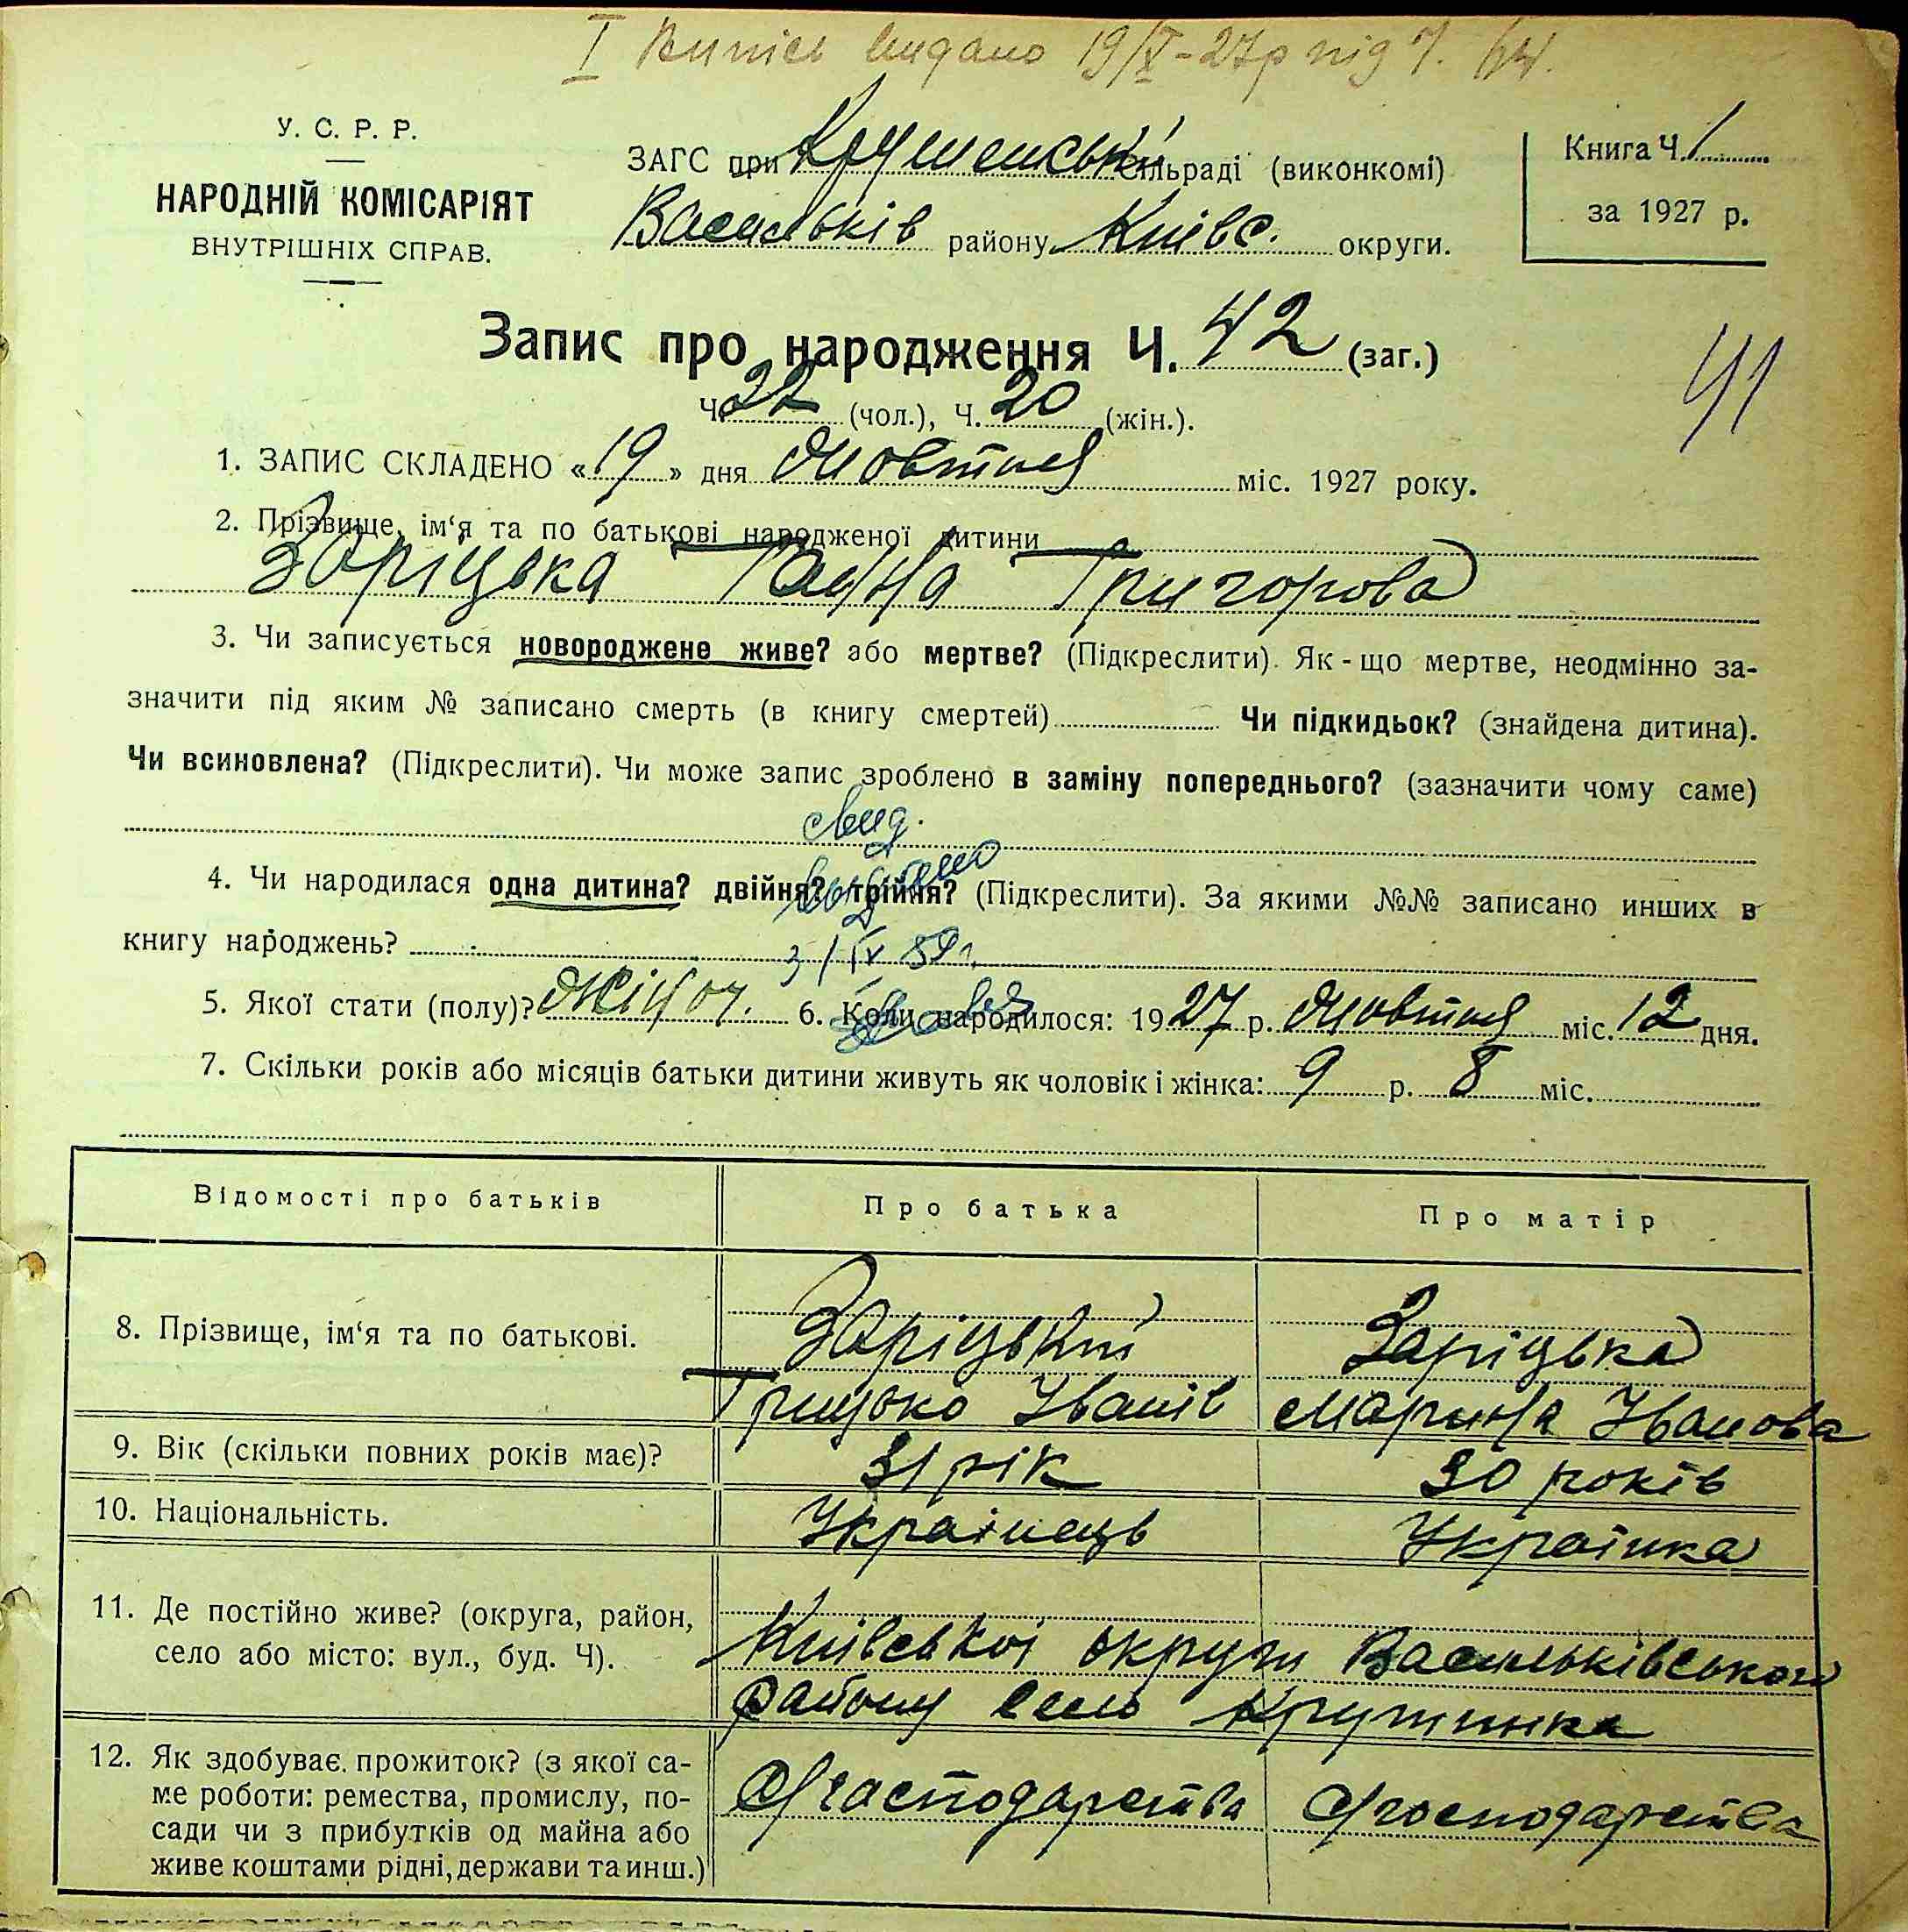 I Випісь видано 19/X-27р під Ч. 64.
У. С. Р. Р.
НАРОДНІЙ КОМІСАРІЯТ
ВНУТРІШНІХ СПРАВ.
ЗАГС при Крушенські сільраді (виконкомі)
Васильків району Київс. округи.
Книга Ч. 1
за 1927 р.
Запис про народження Ч. 42 (заг.)
41
Ч. 22 (чол.), Ч. 20 (жін.).
1. ЗАПИС СКЛАДЕНО «19» дня Жовтня міс. 1927 року.
2. Прізвище, ім‘я та по батькові народженої дитини
Заріцька Ганна Григорова
3. Чи записується новороджене живе? або мертве? (Підкреслити). Як-що мертве, неодмінно за-
значити під яким № записано смерть (в книгу смертей) Чи підкидьок? (знайдена дитина).
Чи всиновлена? (Підкреслити). Чи може запис зроблено в заміну попереднього? (зазначити чому саме)
свид.
выдано
4. Чи народилася одна дитина? двійня? трійня? (Підкреслити). За якими №№ записано инших в
книгу народжень?
3/IV 59г.
5. Якої стати (полу)? Жіноч. 6. Коли народилося: 1927 р. Жовтня міс. 12 дня.
7. Скільки років або місяців батьки дитини живуть як чоловік і жінка: 9 р. 8 міс.
Відомості про батьків Про батька Про матір
8. Прізвище, ім‘я та по батькові.
Заріцький Заріцька
Грицько Іванів Марина Іванова
9. Вік (скільки повних років має)? 31 рік 30 років
10. Національність. Українець Українка
11. Де постійно живе? (округа, район,
село або місто: вул., буд. Ч).
Київської округи Васильківського
району село Крушинка
12. Як здобуває прожиток? (з якої са-
ме роботи: ремества, промислу, по-
сади чи з прибутків од майна або
живе коштами рідні, держави та инш.)